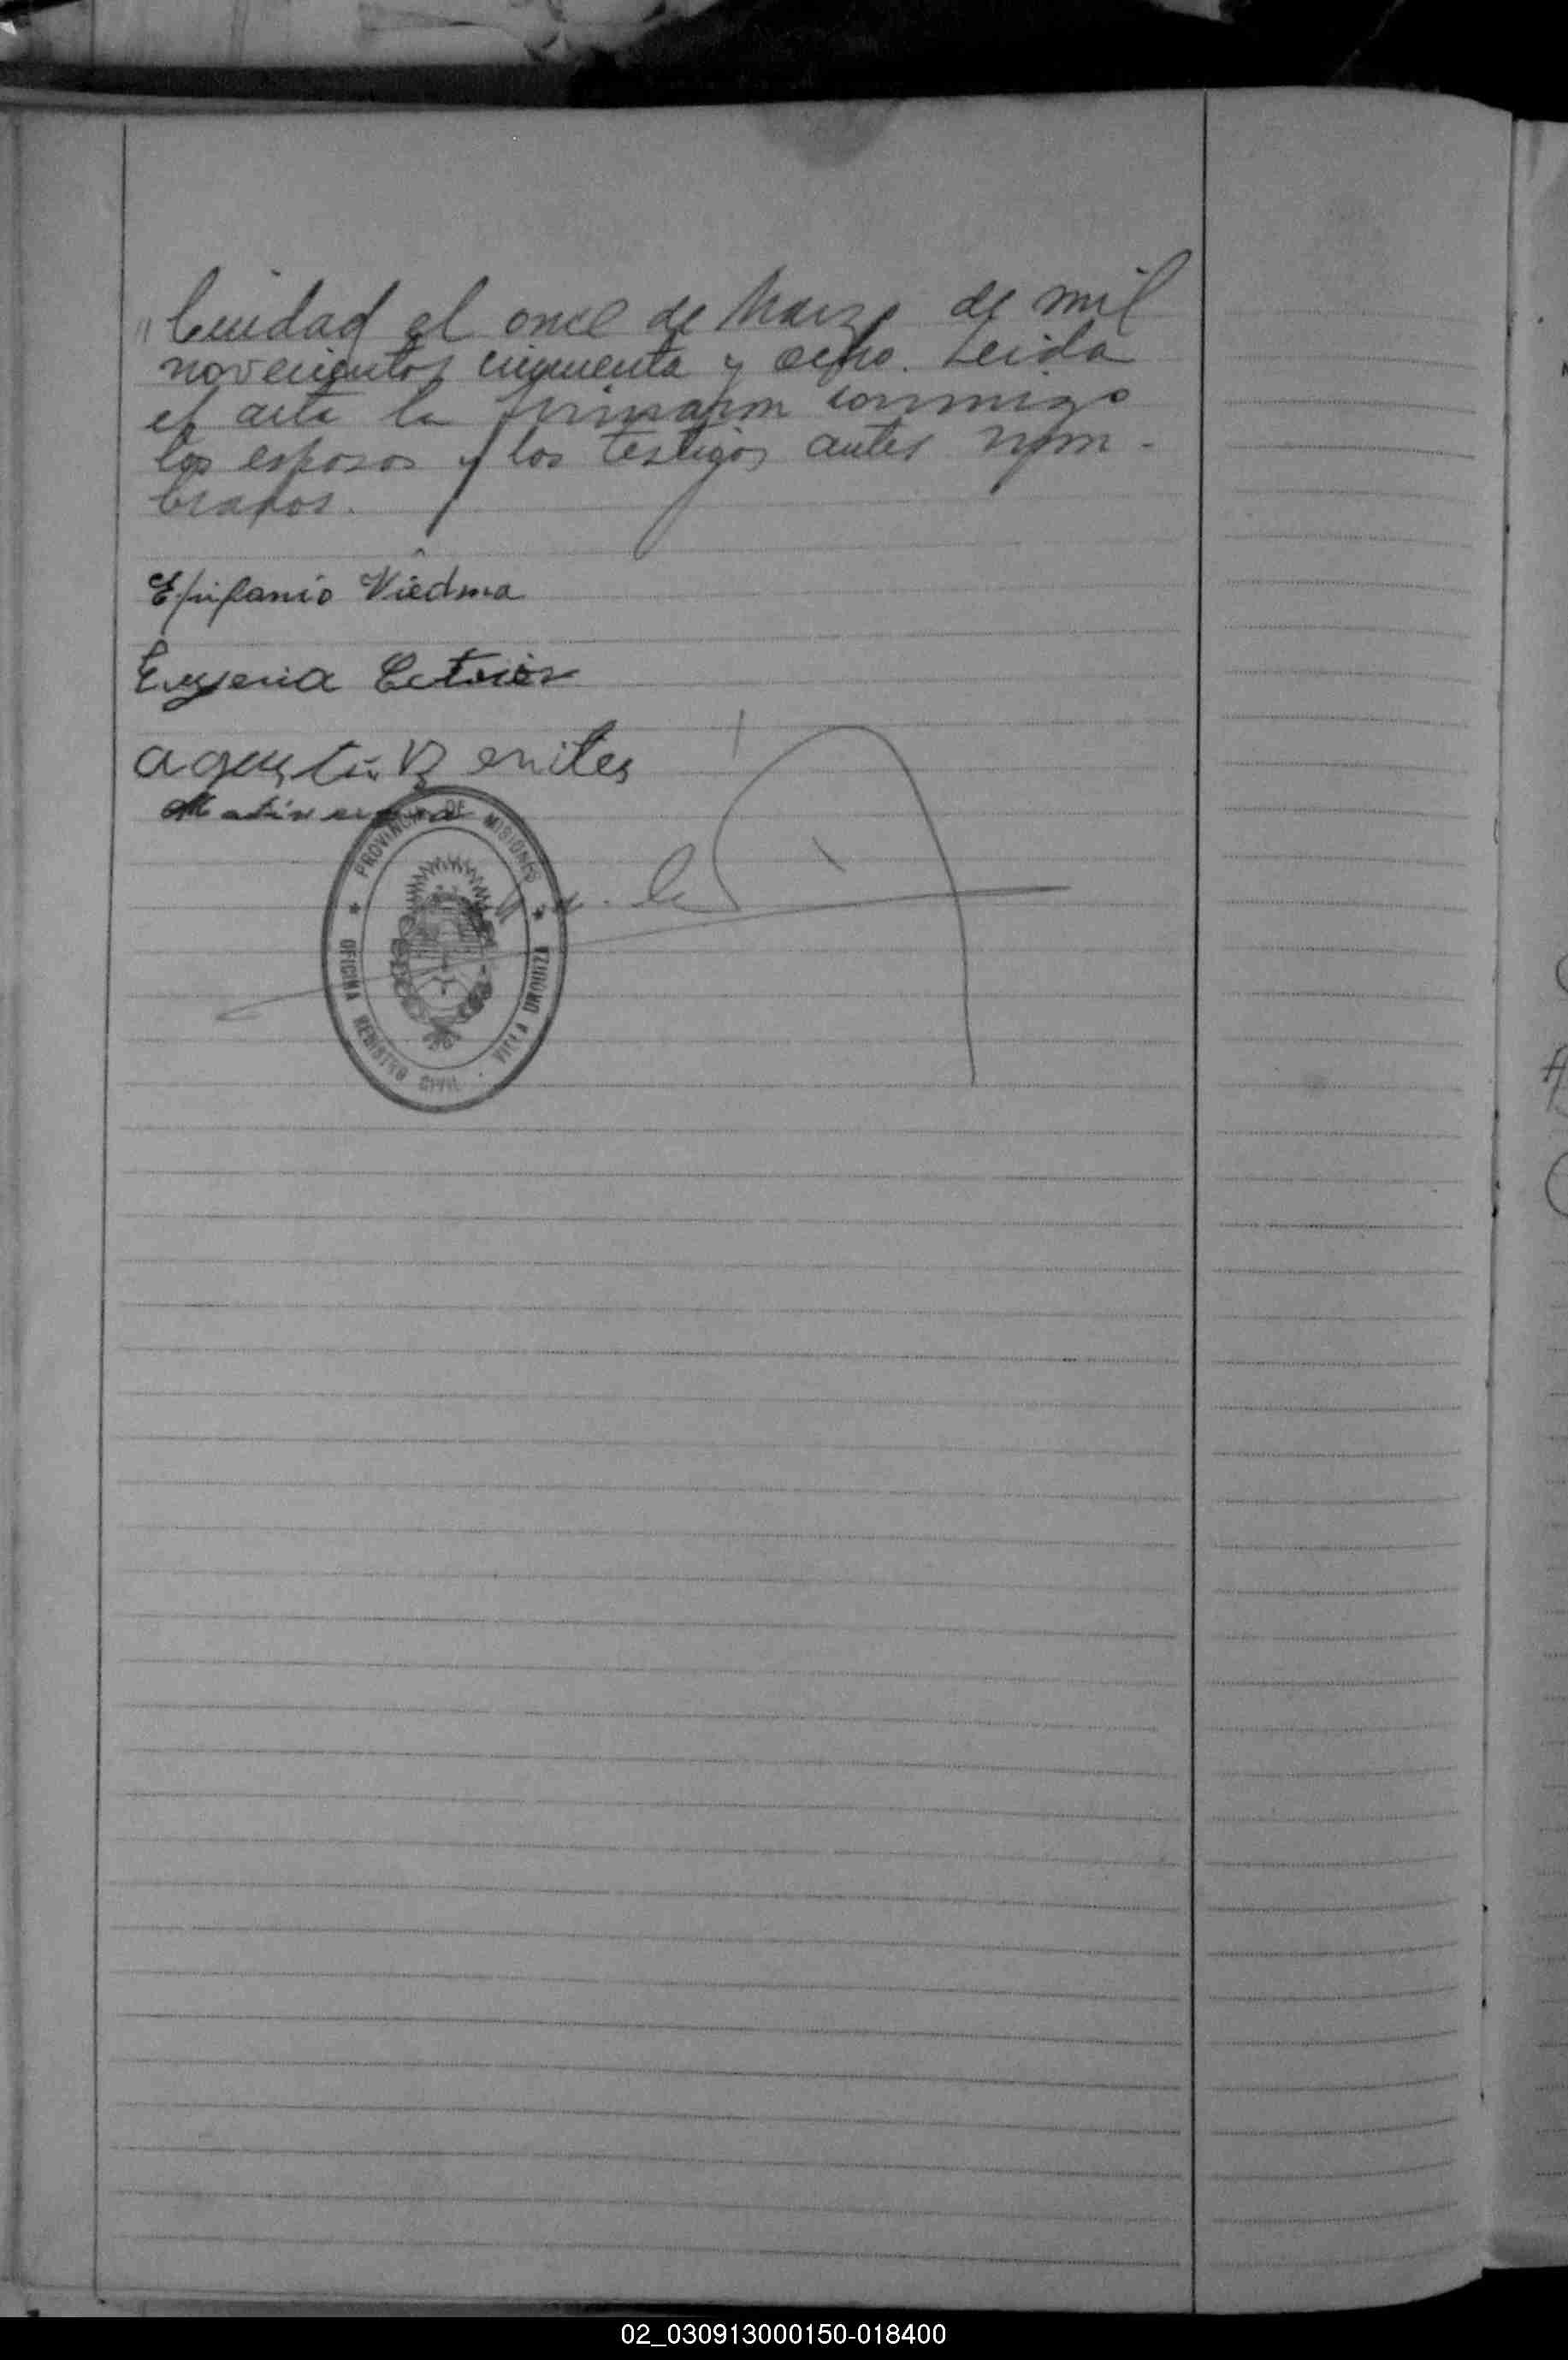 "Ciudad el once de Marzo de mil
novecientos cincuenta y ocho. Leida
el acta la firmaron conmigo
los esposos y los testigos antes nom-
brados.
Epifanio Viedma
Eugenia
agustin Benites
PROVINCIA DE MISIONES
OFICINA REGISTRO CIVIL - VILLA URQUIZA
02_030913000150-018400